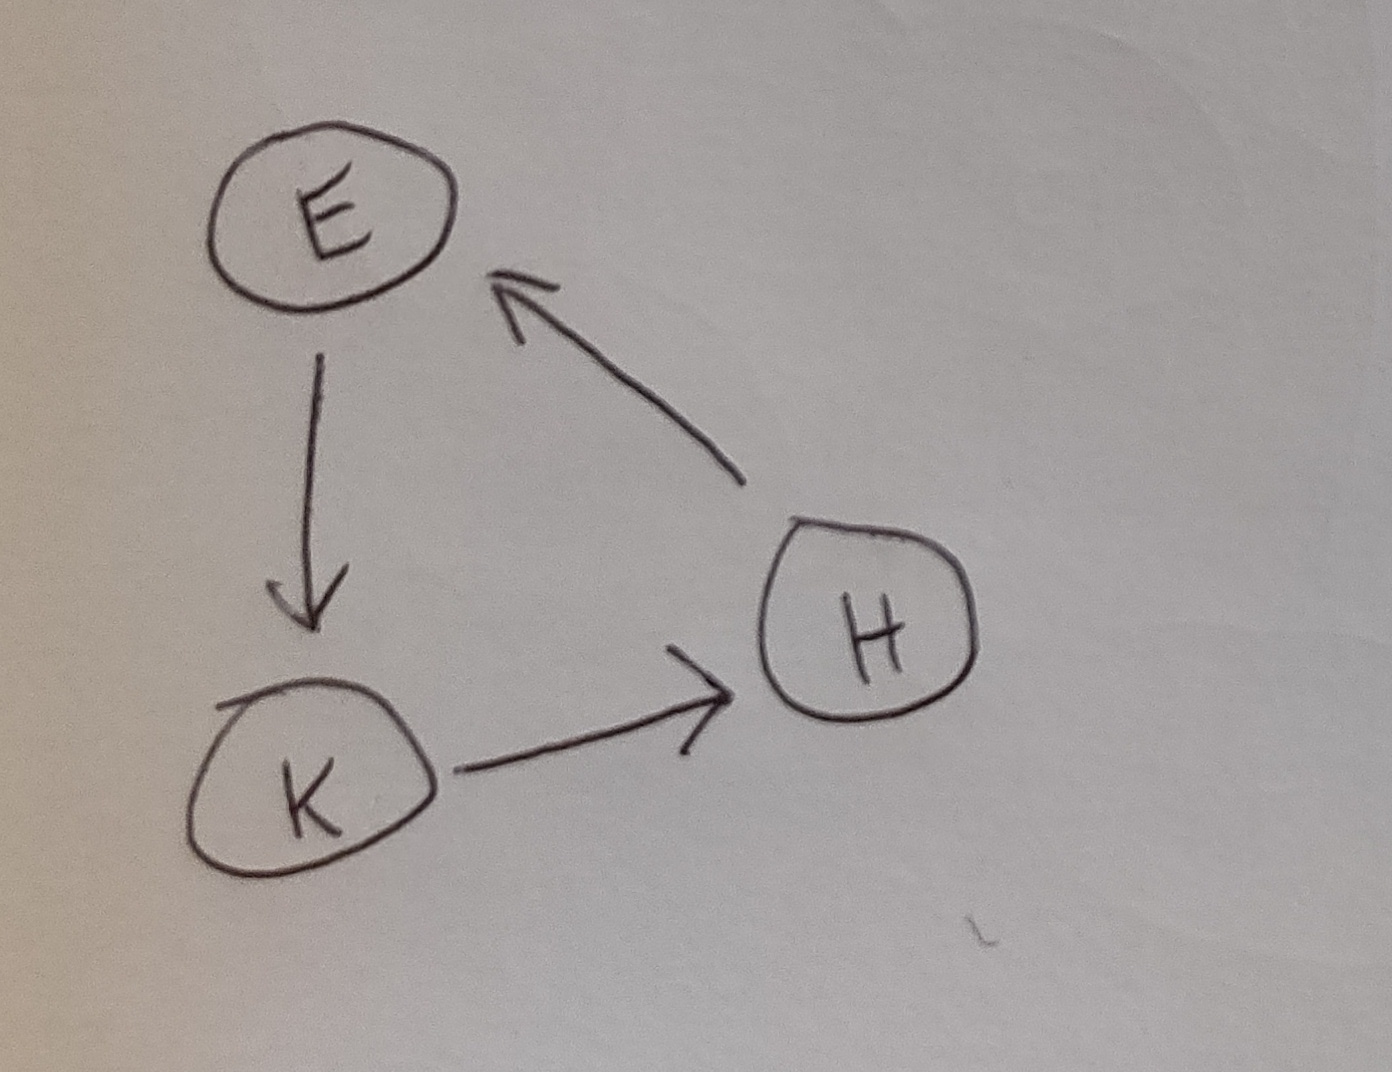 E
H
K